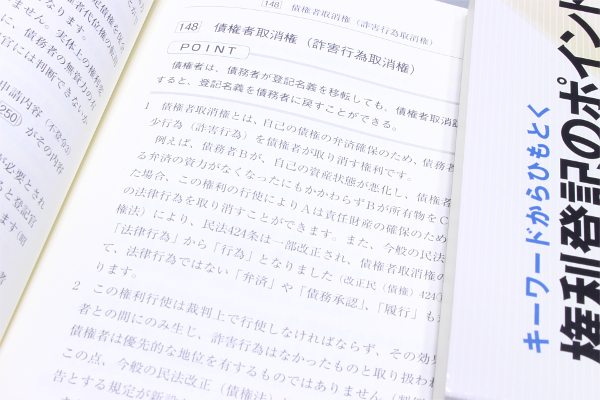 148 債権者取消権（詐害行為取消権）
148 債権者取消権（詐害行為取消権）
POINT
債権者は、債務者が登記名義を移転しても、債権者取消
すると、登記名義を債務者に戻すことができる。
1 債権者取消権とは、自己の債権の弁済確保のため、債務者
少行為（詐害行為）を債権者が取り消す権利です。
例えば、債務者Bが、自己の資産状態が悪化し、債権者
る弁済の資力がなくなったにもかかわらずBが所有物をC
た場合、この権利の行使によりAは責任財産の確保のため
の法律行為を取り消すことができます。また、今般の民法
権法）により、民法424条は一部改正され、債権者取消権の
「法律行為」から「行為」となりました（改正民（債権）424①
て、法律行為ではない「弁済」や「債務承認」、「履行」も
ります。
2 この権利行使は裁判上で行使しなければならず、その効
者との間にのみ生じ、詐害行為はなかったものと取り扱われ
債権者は優先的な地位を有するものではありません
この点、今般の民法改正（債権法）
告とする規定が新設
債権者代位権の
なります。
に、債務者の無資力の
官には判断できないか
申請内容（不登
250）がその内容
が必要とされ
ると登記官
ます（昭
者
キーワードからひもとく
権利登記のポイント